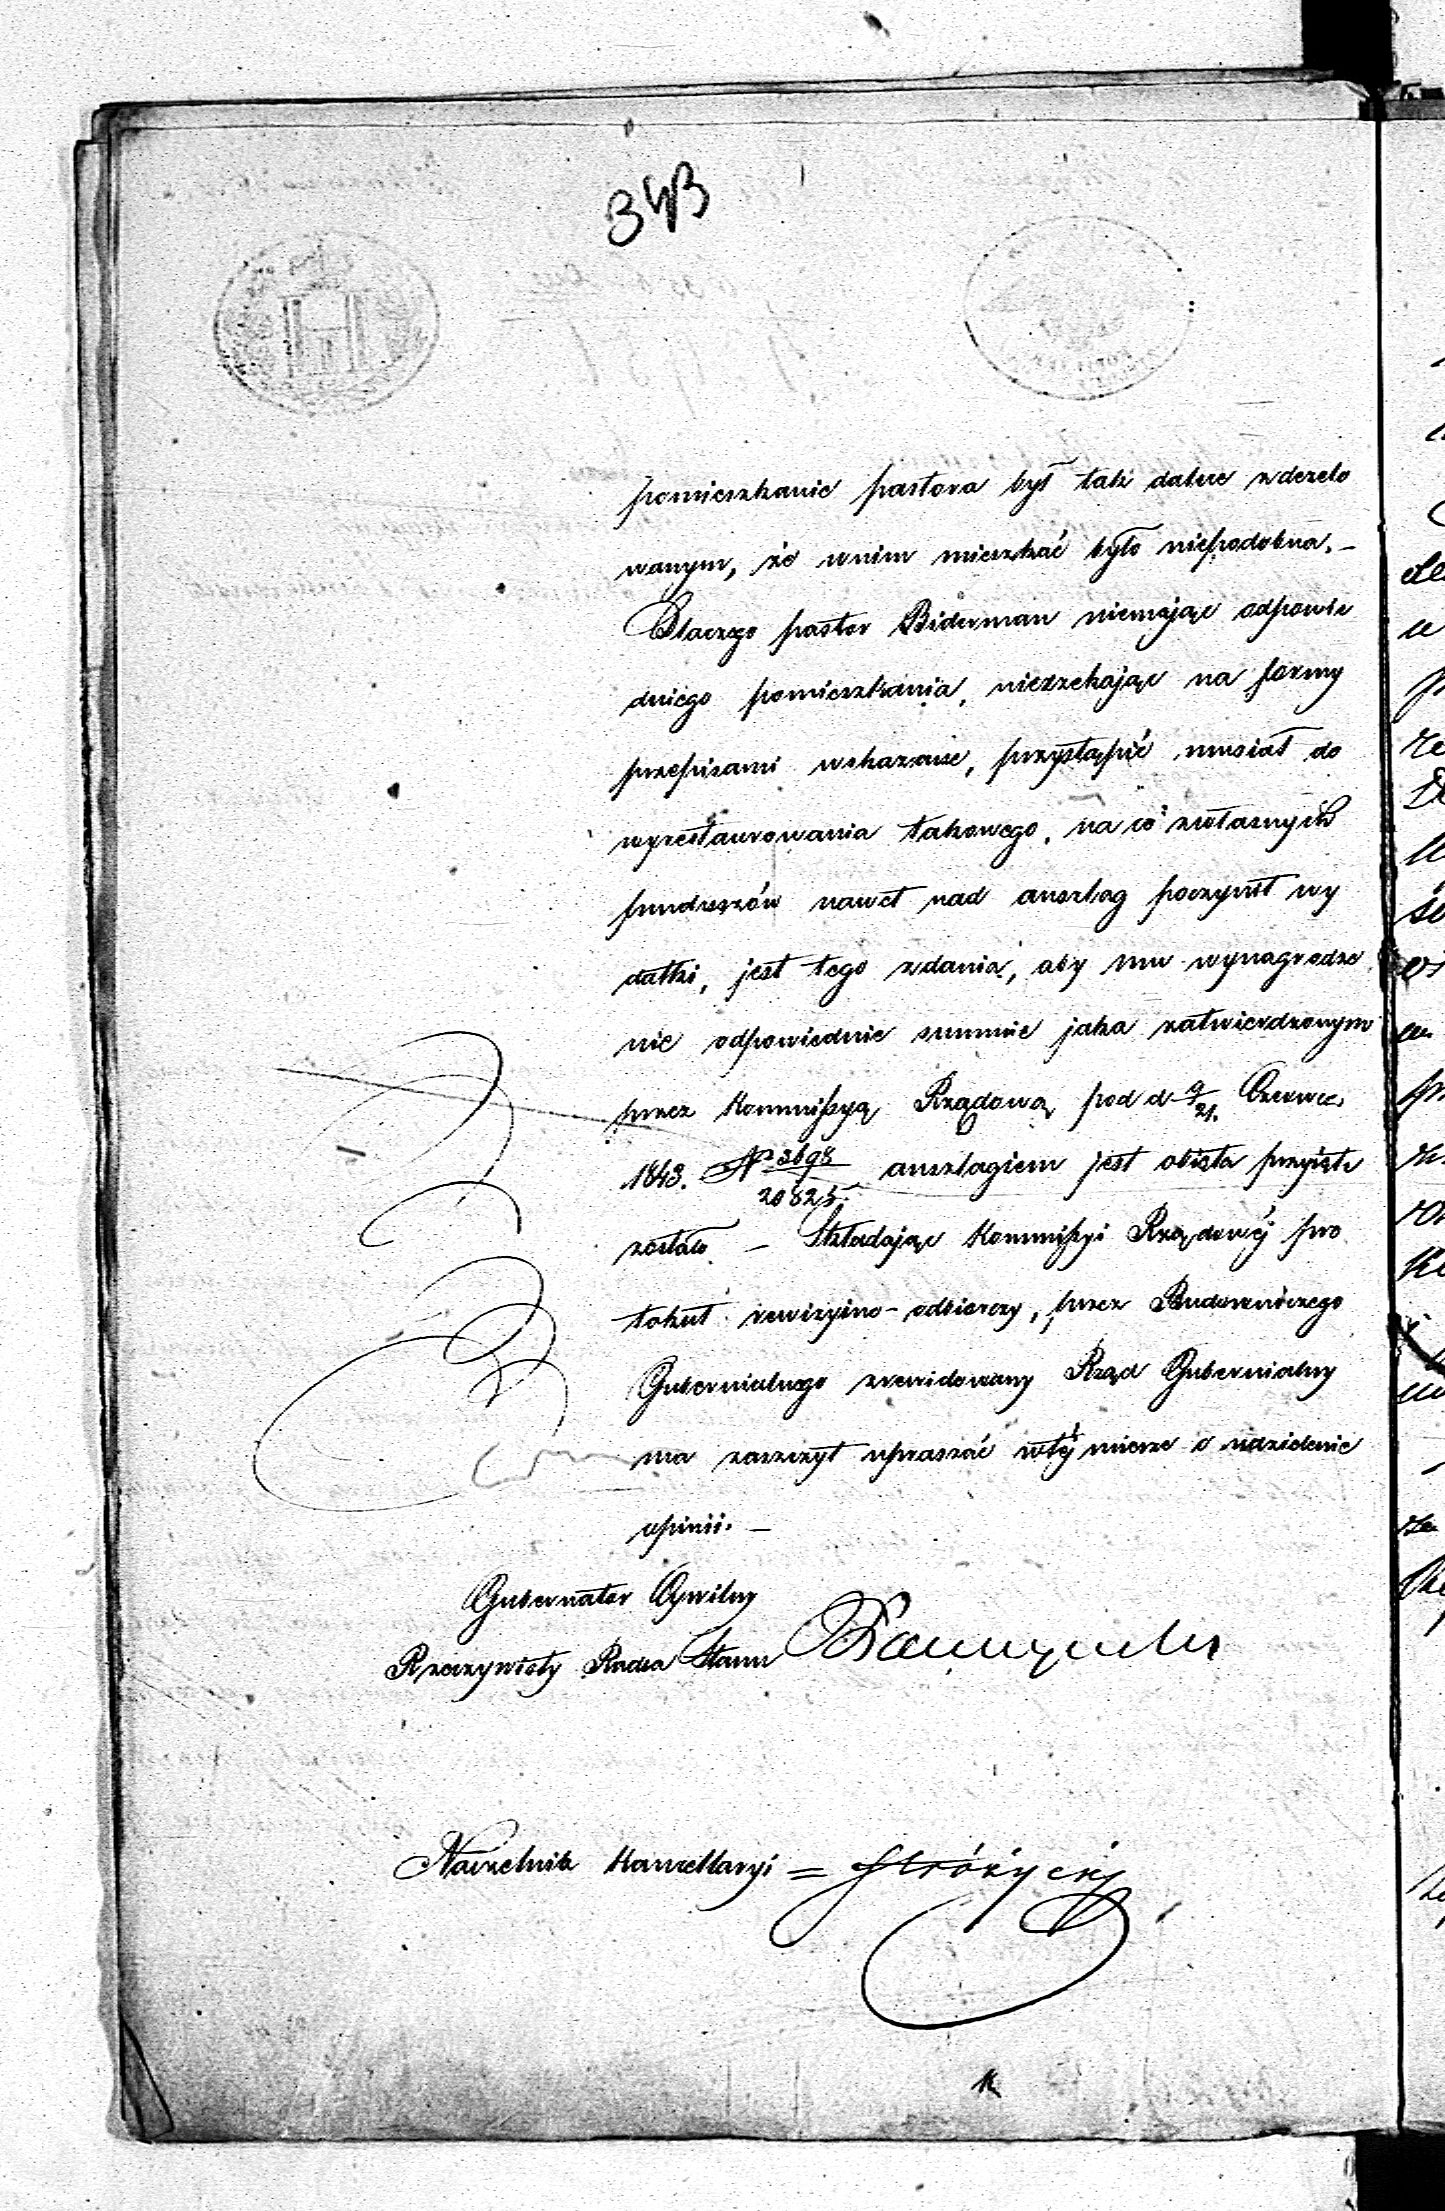 343
pomieszkanie pastora był tak dalece zdezelo
wanym, że wnim mieszkać było niepodobna. –
Dlaczego pastor Biderman niemając odpowie
dniego pomieszkania, nieczekając na formy
przepisami wskazane, przystąpić musiał do
wyrestaurowania takowego, na co zwłasnych
funduszów nawet nad anszlag poczynił wy
datki, jest tego zdania, aby mu wynagrodze
nie odpowiednie summie jaka zatwierdzonym
przez Kommissyą Rządową pod d 9/21. Czerwca
1843. № 3698/20825. anszlagiem jest objęta przyjęte
zostało – Składając Kommissyi Rządowéj pro
tokuł rewizyino-odbiorczy, przez Budowniczego
Gubernialnego zrewidowany Rząd Gubernialny
ma zaszczyt upraszać wtéj mierze o udzielenie
opinii. –
Gubernator Cywilny
Rzeczywisty Radca Stanu
Naczelnik Kancellaryi =